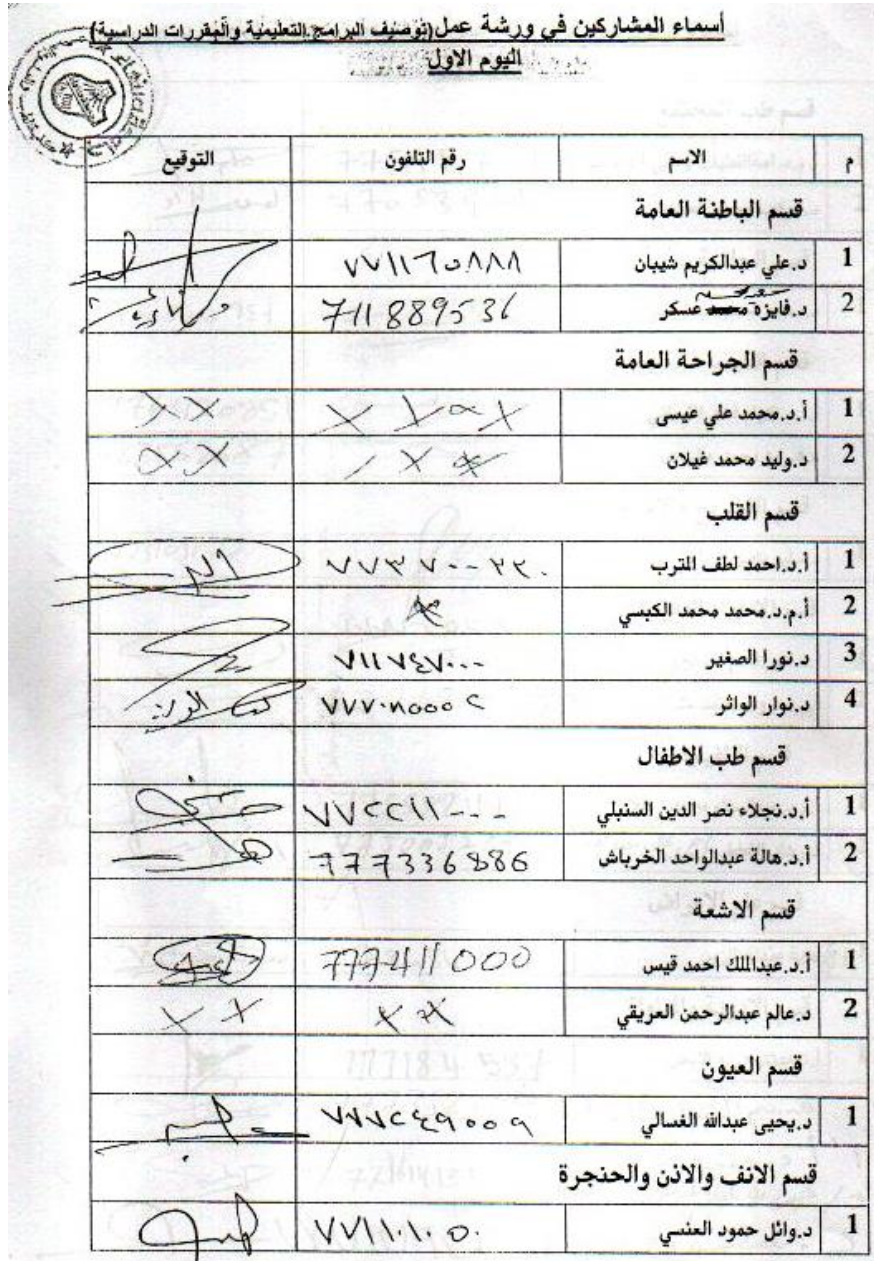 أسماء المشاركين في ورشة عمل (توصيف البرامج التعليمية والمقررات الدراسية)
اليوم الاول
م الاسم رقم التلفون التوقيع
قسم الباطنة العامة
1 د.علي عبدالكريم شيبان ٧٧١١٦٥٨٨٨
2 د.فايزة محمد عسكر 711889536
قسم الجراحة العامة
1 أ.د.محمد علي عيسى
2 د.وليد محمد غيلان
قسم القلب
1 أ.د.احمد لطف المترب ٧٧٣٧٠٠٢٢٠
2 أ.م.د.محمد محمد الكبسي
3 د.نورا الصغير ٧١١٧٤٧٠٠٠
4 د.نوار الواثر
قسم طب الاطفال
1 أ.د.نجلاء نصر الدين السنبلي ٧٧٢٢١١٠٠٠
2 أ.د.هالة عبدالواحد الخرباش 777336886
قسم الاشعة
1 أ.د.عبدالملك احمد قيس 777411000
2 د.عالم عبدالرحمن العزيقي
قسم العيون
1 د.يحيى عبدالله الغسالي ٧٧٧٢٤٩٥٥٩
قسم الانف والاذن والحنجرة
1 د.وائل حمود العنسي ٧٧١١٠١٠٥٠